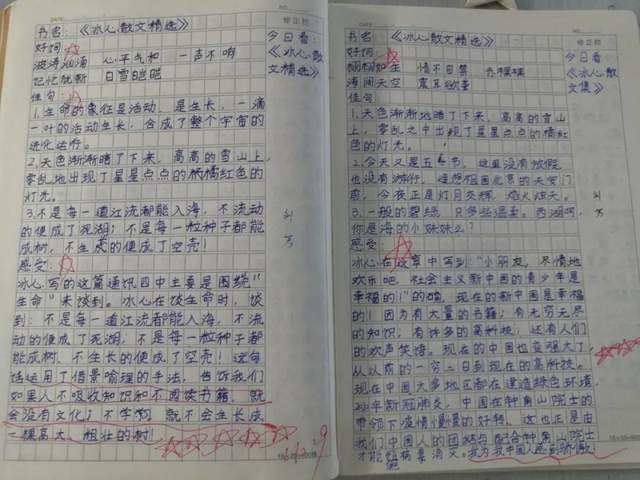 书名：《冰心散文精选》
好词
波涛汹涌 心平气和 一声不响
记忆犹新 白雪皑皑
佳句
1.生命的象征是活动，是生长，一滴
一叶的活动生长，合成了整个宇宙的
进化运行。
2.天色渐渐暗了下来，高高的雪山上，
零乱地出现了星星点点的橘红色的
灯光。
3.不是每一道江流都能入海，不流动
的便成了死湖；不是每一粒种子都能
成树，不生的便成了空壳！
感受：
冰心写的这篇通讯四中主要是围绕“
生命”来谈到。冰心在谈生命时，谈
到：不是每一道江流都能入海，不流
动的便成了死湖，不是每一粒种子都
能成树，不生长的便成了空壳！这句
话运用了借景喻理的手法，告诉我们
如果人不吸收知识和不阅读书籍，就
会没有文化；不学习，就不会生长成
一棵高大、粗壮的树！
修正栏
今日看：
《冰心散
文精选》
书名：《冰心散文精选》
好词
栩栩如生 情不自禁
海阔天空 震耳欲聋
佳句
1.天色渐渐地暗了下来，高高的雪山
上，零乱之中出现了星星点点的橘红
色的灯光。
2.今天又是五节，这里没有放假，
也没有游行，遥想祖国北京的天安门
前，今夜正是灯月交辉，焰火烛天。
3.一般的碧绿，只多些温柔。西湖呵，
你是海的小妹妹么？
感受：
冰心在这章中写到：“小朋友，尽情地
欢乐吧，社会主义新中国的青少年是
幸福的！”的确，现在的新中国是幸福
的！因为有大量的书籍；有无穷无尽
的知识；有许多的高科技；还有人们
的欢声笑语。现在的中国也变强大了，
从以前的一穷二白到现在的高科技。
现在中国大多地区都在建造绿色环境，
2020年新冠肺炎，中国在钟南山院士的
带领下疫情慢慢的好转，这也正是由
我们中国人的团结与配合钟南山院士
才能病毒消灭。我为我中国人感到骄傲
修正栏
今日看：
《冰心散
文集》